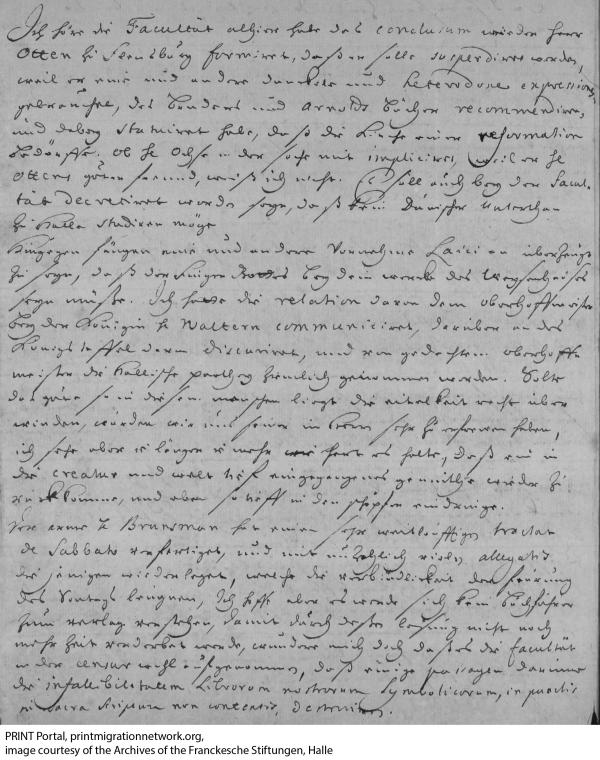 Ich höre die Facultät alhier habe das conclusum wieder Herr
Otten zu Flensburg formiret, daß er solle suspendiret werden,
weil er eine und andere dunckele und heterodoxe expressiones
gebrauchet, des Speners und Arnolds bücher recommendiret,
und dabey statuiret habe, daß die Kirche einer reformation
bedürffe. Ob H. Ochse in der sache mit impliciret, weil er H.
Ottens guter freund, weiß ich nicht. Es soll auch bey der Facul-
tät decretiret worden seyn, daß kein Dänischer Unterthan
zu Halle studiren möge
Hingegen fangen eine und andere Vornehme Laici an überzeugt
zu seyn, daß der finger Gottes bey dem wercke des Waysenhauses
seyn müste. Ich habe die relation davon dem oberhoffmeister
bey der Königin H. Waltern communiciret, darüber an des
Königs taffel denn discuriret, und von gedachtem oberhoff-
meister die Hallische parthey ziemlich genommen worden. Solte
das gute so in diesem menschen liegt die eitelkeit recht über
winden, würden wir uns seiner in dem sehr zu erfreuen haben,
ich sehe aber je länger je mehr wie hart es halte, daß ein in
die creatur und welt tief eingegangenes gemüthe wieder zu
rück komme, und eben so tieff in den schöpfer eindringe.
Der arme H. Brunsman hat einen sehr weitläufftigen tractat
de Sabbato verfertiget, und mit unzehlich vielen allegatis
die jenigen wiederleget, welche die verbindlichkeit der feyrung
des Sontags leugnen, Ich hoffe aber es werde sich kein buchführer
zum verlag verstehen, damit durch dessen lesung nicht noch
mehr Zeit verdorben werde, wundere mich doch daß es die facultät
in der censur wohl aufgenommen, daß einige passagen darinne
die infallibilitatem librorum nostrorum symbolicorum, in punctis
in sacra scriptura non contentis, destruiren.
PRINT Portal, printmigrationnetwork.org,
image courtesy of the Archives of the Franckesche Stiftungen, Halle